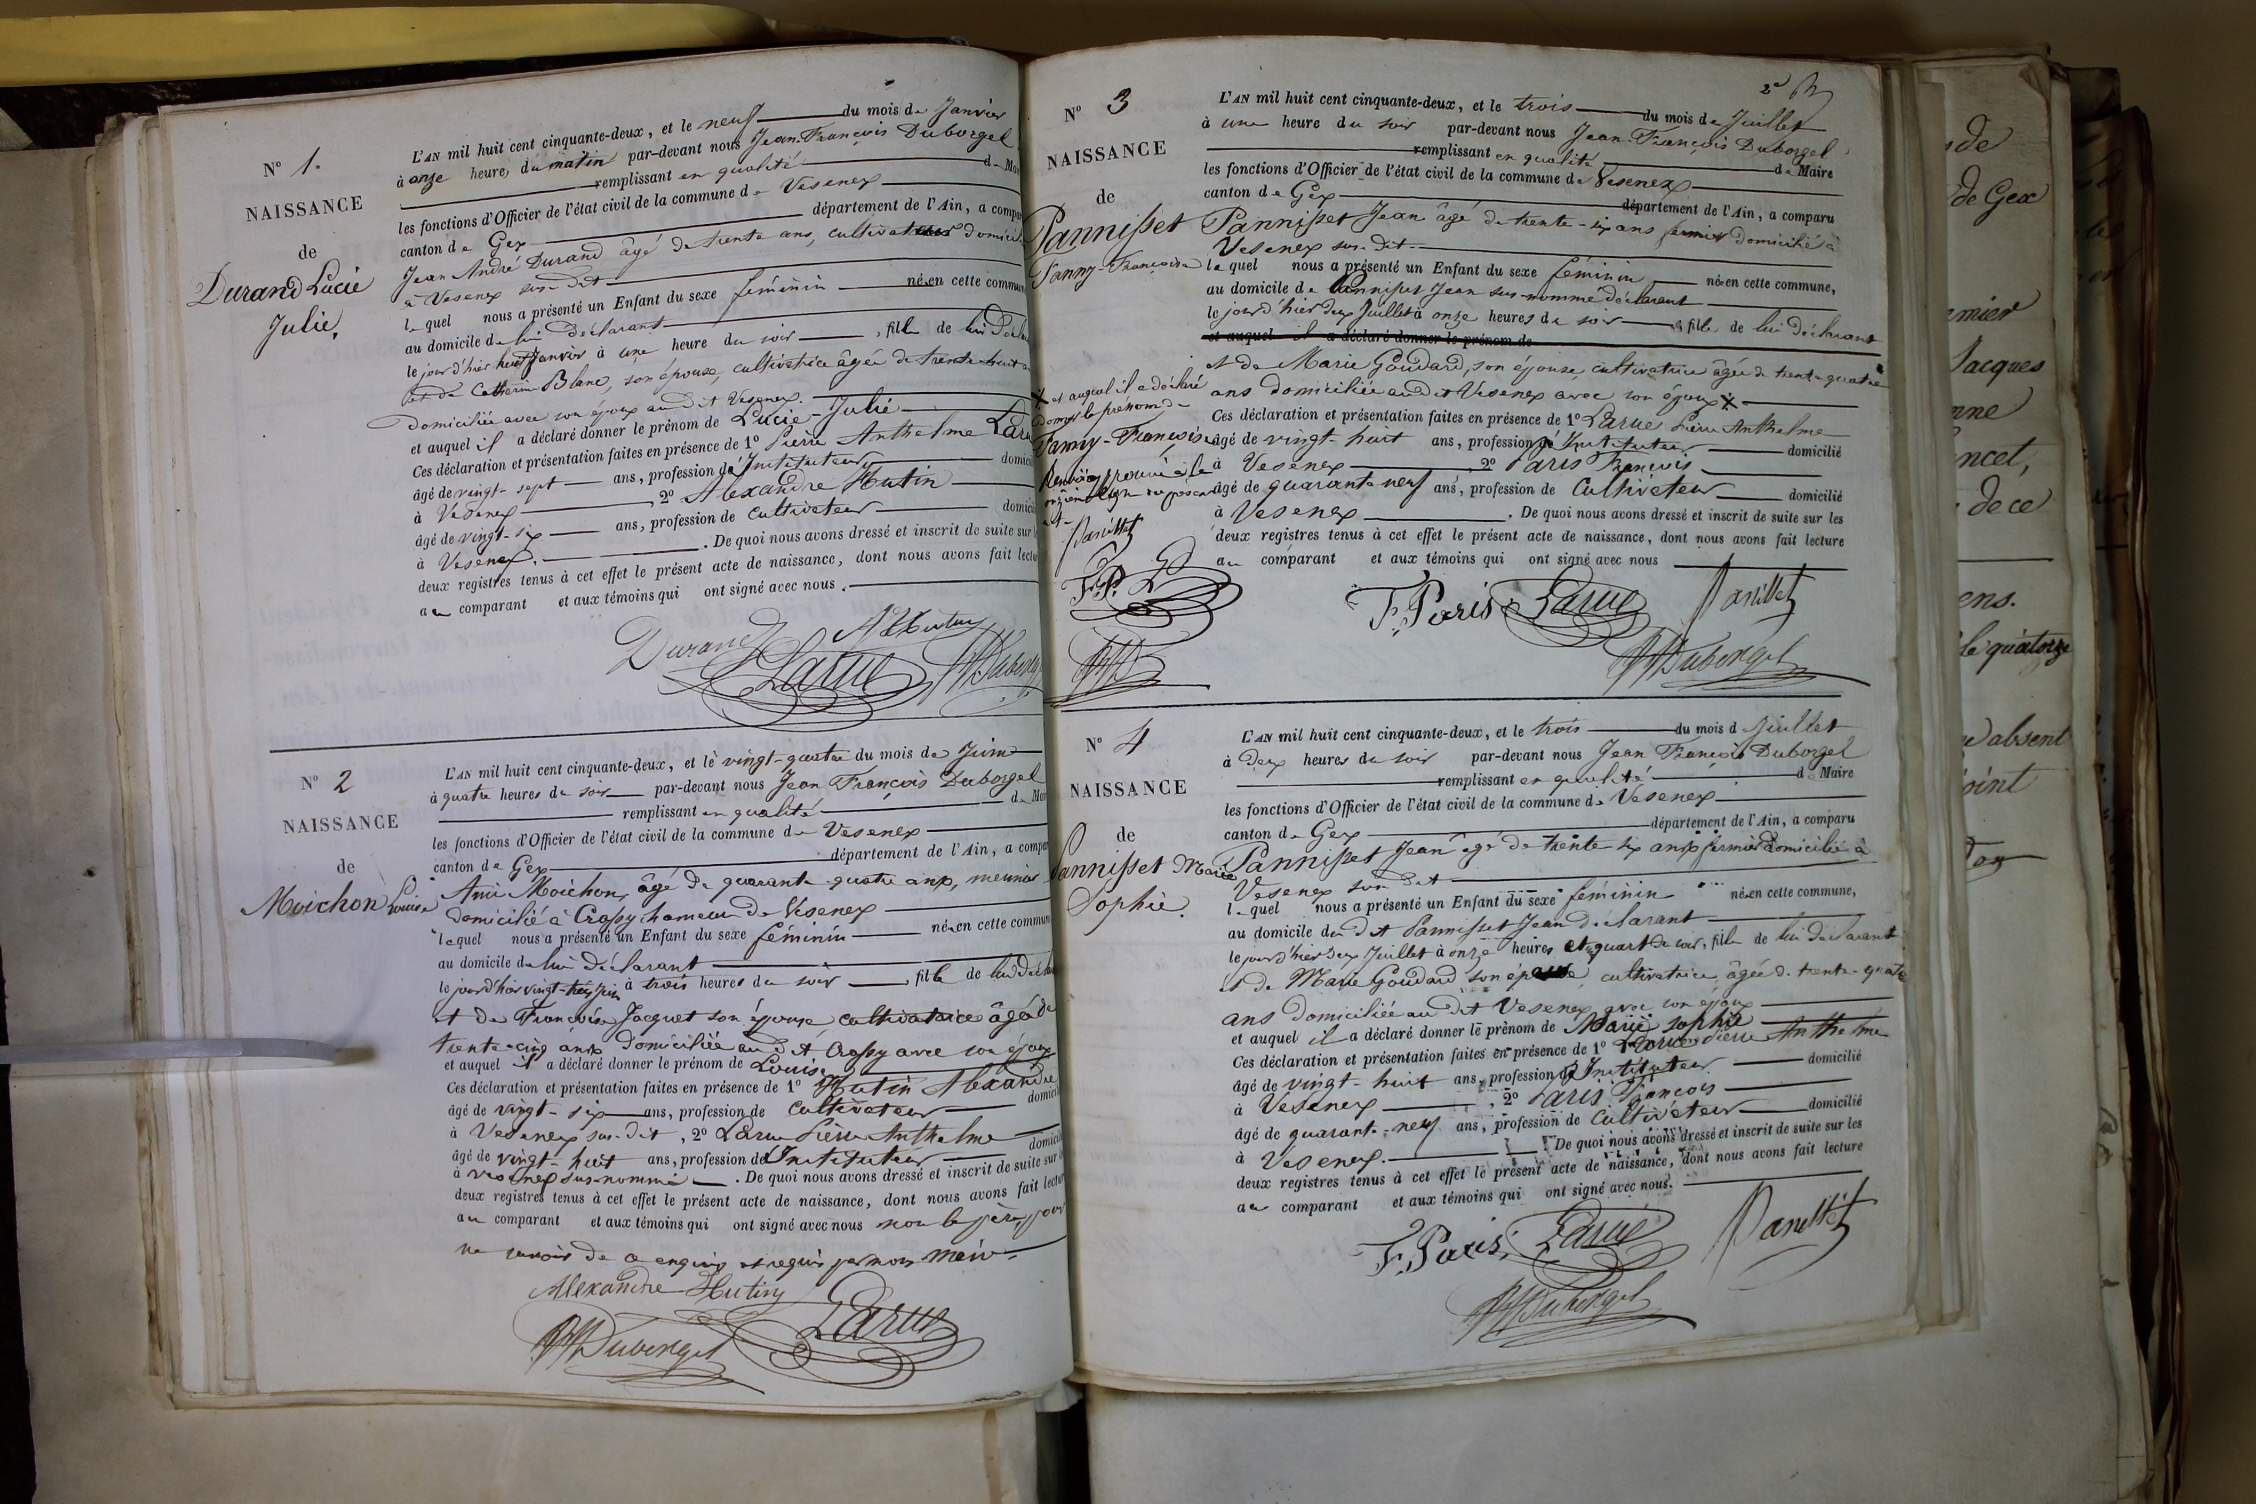 N° 1.
NAISSANCE
de
Durand Lucie
Julie.
L'AN mil huit cent cinquante-deux, et le neuf du mois de Janvier
à onze heures du matin par-devant nous Jean-François Duborgel
remplissant en qualité de
les fonctions d'Officier de l'état civil de la commune de Vesenex
canton de Gex département de l'Ain, a
Jean André Durand âgé de trente ans, cultivateur
à Vesenex sus-dit
lequel nous a présenté un Enfant du sexe féminin née en cette
au domicile de lui déclarant
le jour d'hier huit Janvier à une heure du soir, fille de lui
et de Catherine Blanc, son épouse, cultivatrice âgée de trente-huit
Domiciliée avec son époux au dit Vesenex.
et auquel il a déclaré donner le prénom de Lucie-Julie
Ces déclaration et présentation faites en présence de 1° Pierre Anthelme
âgé de vingt-sept ans, profession d'Instituteur
à Vesenex 2° Alexandre Hutin
âgé de vingt-six ans, profession de cultivateur
à Vesenex. De quoi nous avons dressé et inscrit de suite sur
deux registres tenus à cet effet le présent acte de naissance, dont nous avons fait
au comparant et aux témoins qui ont signé avec nous.
Durand A Hutin
Larue
N° 2
NAISSANCE
de
Moichon Louise
L'AN mil huit cent cinquante-deux, et le vingt-quatre du mois de Juin
à quatre heures du soir par-devant nous Jean François Duborgel
remplissant en qualité de
les fonctions d'Officier de l'état civil de la commune de Vesenex
canton de Gex département de l'Ain, a
Ami Moichon, âgé de quarante-quatre ans, meunier
domicilié à Crassy hameau de Vesenex
lequel nous a présenté un Enfant du sexe féminin née en cette
au domicile de lui déclarant
le jour d'hier vingt-trois Juin à trois heures du soir, fille de lui
et de Françoise Jacquet son épouse cultivatrice âgée de
trente-cinq ans domiciliée au dit Crassy avec son époux
et auquel il a déclaré donner le prénom de Louise
Ces déclaration et présentation faites en présence de 1° Hutin Alexandre
âgé de vingt-six ans, profession de cultivateur
à Vesenex sus-dit, 2° Larue Pierre Anthelme
âgé de vingt-huit ans, profession d'Instituteur
à Vesenex sus-nommé. De quoi nous avons dressé et inscrit de suite sur
deux registres tenus à cet effet le présent acte de naissance, dont nous avons fait
au comparant et aux témoins qui ont signé avec nous non le père, pour
ne savoir de ce enquis et requis par nous Maire.
Alexandre Hutin
Duborgel Larue
2e
N° 3
NAISSANCE
de
Pannisset
Fanny-Françoise
L'AN mil huit cent cinquante-deux, et le trois du mois de Juillet
à une heure du soir par-devant nous Jean-François Duborgel
remplissant en qualité de Maire
les fonctions d'Officier de l'état civil de la commune de Vesenex
canton de Gex département de l'Ain, a comparu
Pannisset Jean âgé de trente-six ans fermier domicilié à
Vesenex sus-dit
lequel nous a présenté un Enfant du sexe féminin née en cette commune,
au domicile de Pannisset Jean sus-nommé déclarant
le jour d'hier deux Juillet à onze heures du soir, fille de lui déclarant
et auquel il a déclaré donner le prénom de
et de Marie Goudard, son épouse, cultivatrice âgée de trente-quatre
ans domiciliée au dit Vesenex avec son époux X
X et auquel il a déclaré
donner le prénom de
Fanny-Françoise
Renvoi approuvé à la
onzième ligne
Panisset
F.P. L
Ces déclaration et présentation faites en présence de 1° Larue Pierre Anthelme
âgé de vingt-huit ans, profession d'Instituteur domicilié
à Vesenex, 2° Paris François
âgé de quarante-neuf ans, profession de Cultivateur domicilié
à Vesenex. De quoi nous avons dressé et inscrit de suite sur les
deux registres tenus à cet effet le présent acte de naissance, dont nous avons fait lecture
au comparant et aux témoins qui ont signé avec nous
F. Paris Larue Panisset
Duborgel
N° 4
NAISSANCE
de
Pannisset Marie
Sophie.
L'AN mil huit cent cinquante-deux, et le trois du mois d Juillet
à deux heures du soir par-devant nous Jean François Duborgel
remplissant en qualité d Maire
les fonctions d'Officier de l'état civil de la commune de Vesenex
canton de Gex département de l'Ain, a comparu
Pannisset Jean âgé de trente-six ans fermier domicilié à
Vesenex sus dit
lequel nous a présenté un Enfant du sexe féminin née en cette commune,
au domicile du dit Pannisset Jean déclarant
le jour d'hier deux Juillet à onze heures et quart du soir, fille de lui déclarant
et de Marie Goudard son épouse, cultivatrice, âgée de trente-quatre
ans domiciliée au dit Vesenex avec son époux
et auquel il a déclaré donner le prénom de Marie Sophie
Ces déclaration et présentation faites en présence de 1° Larue Pierre Anthelme
âgé de vingt-huit ans, profession d'Instituteur domicilié
à Vesenex, 2° Paris François
âgé de quarante-neuf ans, profession de Cultivateur domicilié
à Vesenex. De quoi nous avons dressé et inscrit de suite sur les
deux registres tenus à cet effet le présent acte de naissance, dont nous avons fait lecture
au comparant et aux témoins qui ont signé avec nous.
F. Paris Larue Panisset
Duborgel
de Gex
Jacques
de ce
le quatorze
absent